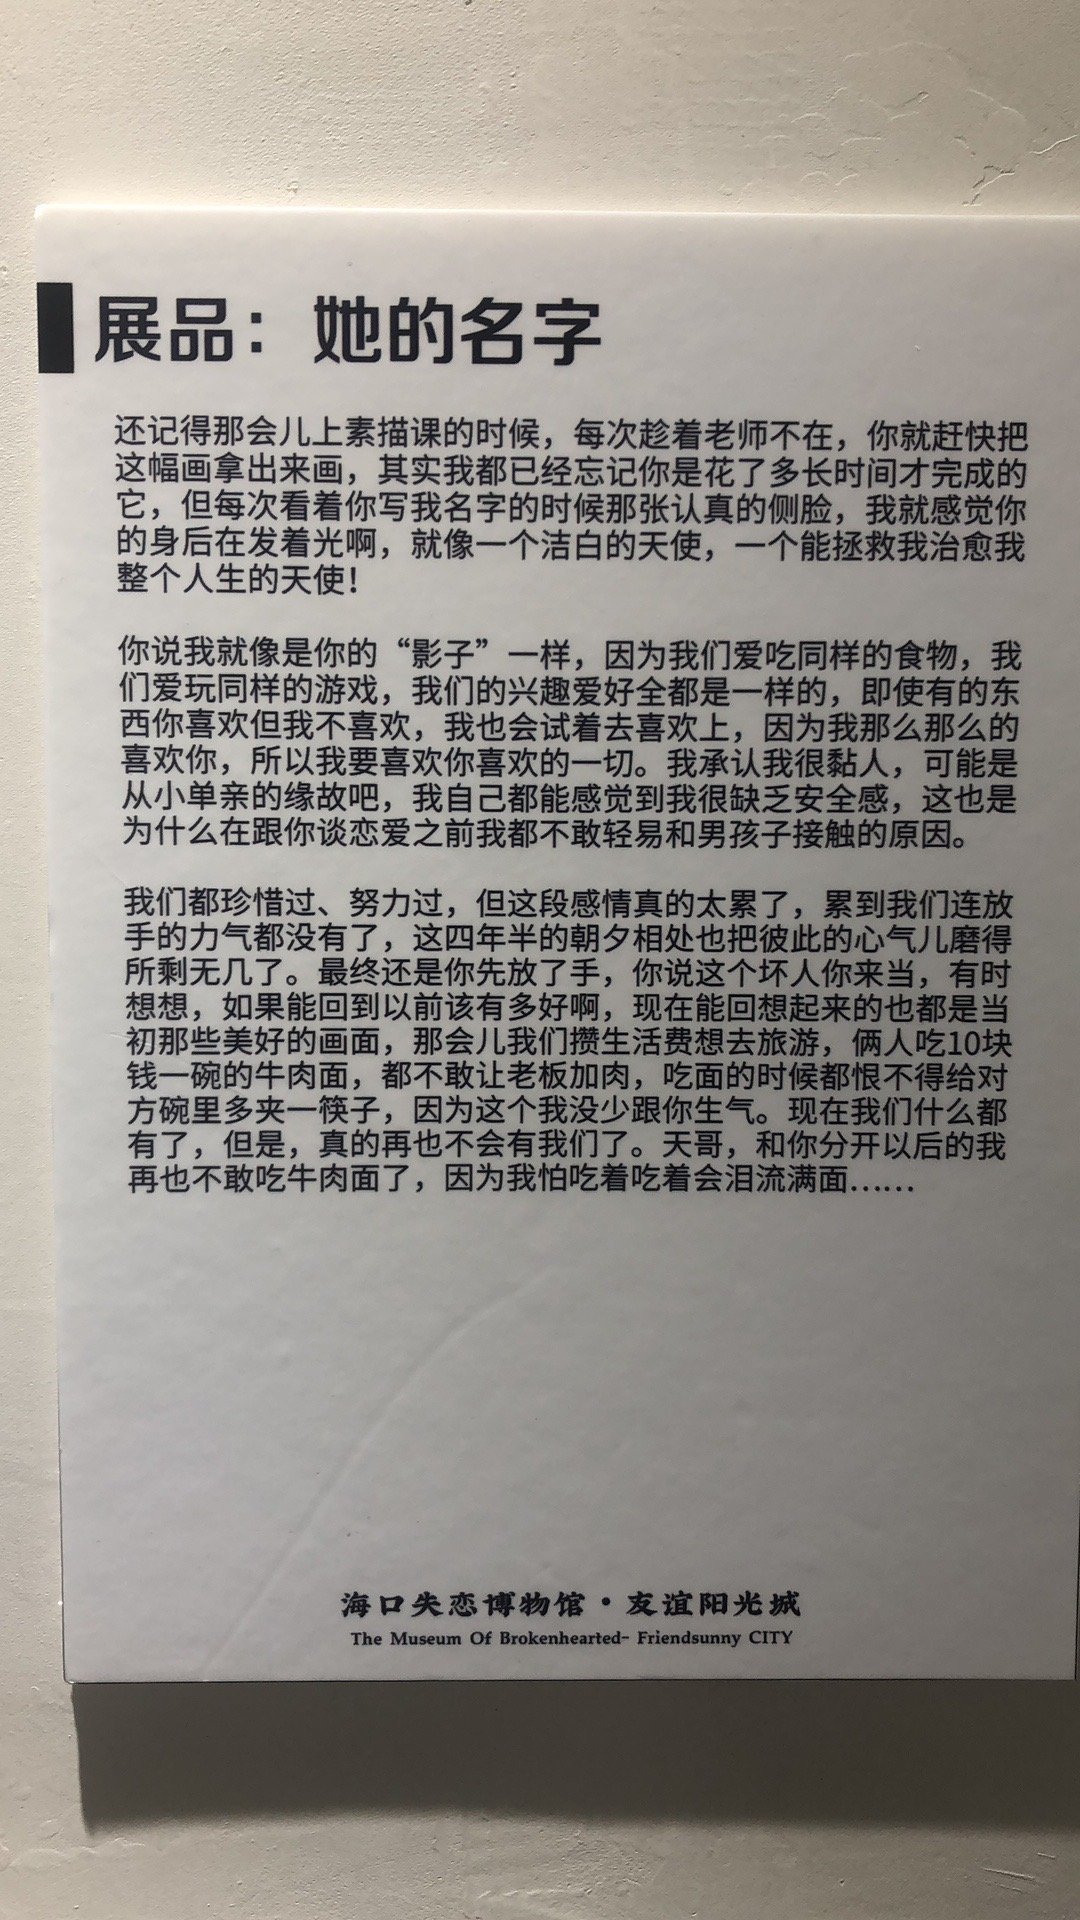 展品：她的名字
还记得那会儿上素描课的时候，每次趁着老师不在，你就赶快把
这幅画拿出来画，其实我都已经忘记你是花了多长时间才完成的
它，但每次看着你写我名字的时候那张认真的侧脸，我就感觉你
的身后在发着光啊，就像一个洁白的天使，一个能拯救我治愈我
整个人生的天使！
你说我就像是你的“影子”一样，因为我们爱吃同样的食物，我
们爱玩同样的游戏，我们的兴趣爱好全都是一样的，即使有的东
西你喜欢但我不喜欢，我也会试着去喜欢上，因为我那么那么的
喜欢你，所以我要喜欢你喜欢的一切。我承认我很黏人，可能是
从小单亲的缘故吧，我自己都能感觉到我很缺乏安全感，这也是
为什么在跟你谈恋爱之前我都不敢轻易和男孩子接触的原因。
我们都珍惜过、努力过，但这段感情真的太累了，累到我们连放
手的力气都没有了，这四年半的朝夕相处也把彼此的心气儿磨得
所剩无几了。最终还是你先放了手，你说这个坏人你来当，有时
想想，如果能回到以前该有多好啊，现在能回想起来的也都是当
初那些美好的画面，那会儿我们攒生活费想去旅游，俩人吃10块
钱一碗的牛肉面，都不敢让老板加肉，吃面的时候都恨不得给对
方碗里多夹一筷子，因为这个我没少跟你生气。现在我们什么都
有了，但是，真的再也不会有我们了。天哥，和你分开以后的我
再也不敢吃牛肉面了，因为我怕吃着吃着会泪流满面……
海口失恋博物馆·友谊阳光城
The Museum Of Brokenhearted- Friendsunny CITY